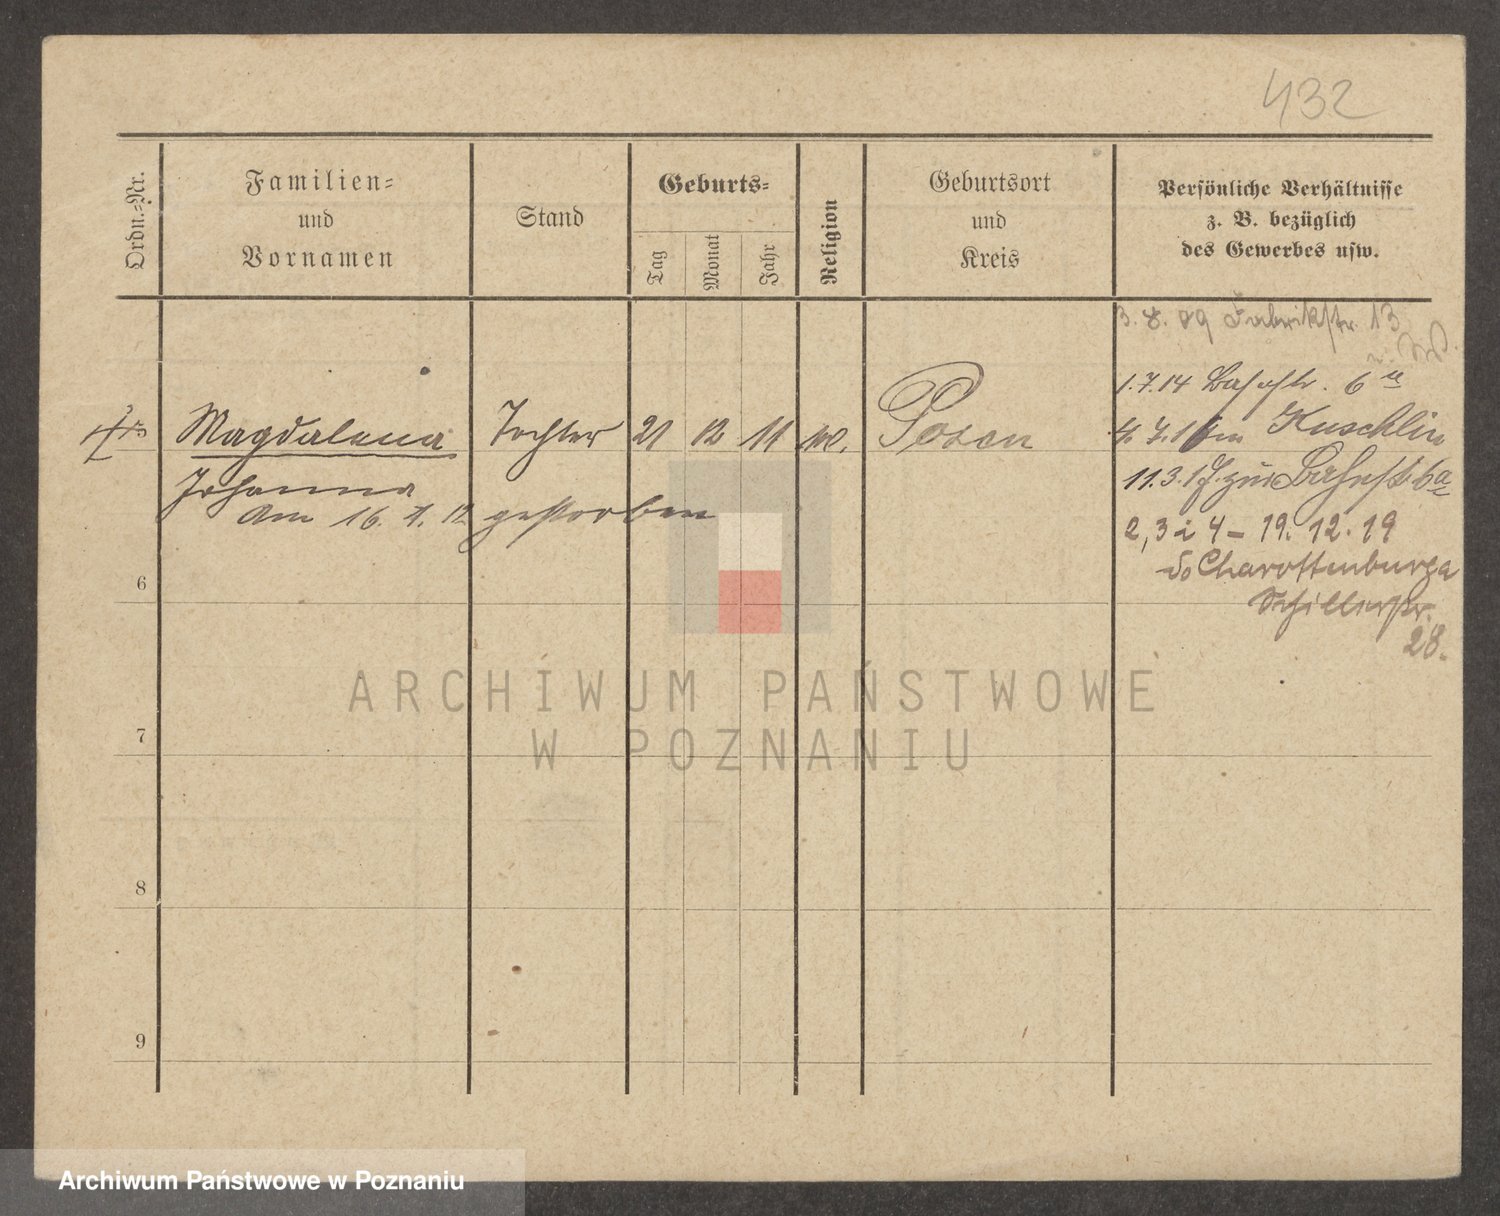 432
Ordn.=Nr.
Familien=
und
Vornamen
Stand
Geburts=
Tag
Monat
Jahr
Religion
Geburtsort
und
Kreis
Persönliche Verhältnisse
z. B. bezüglich
des Gewerbes usw.
3. 8. 09 Fabrikstr. 13
1.7.14 Bahnstr. 6 a
Magdalena Tochter 21 12 11 Posen
4. 7. 16 in Kuschlin
Johanna
11.3.17. zur Bahnstr. 6a
am 16. 4. 12 gestorben
2, 3 i 4 – 19. 12. 19
do Charottenburga
Schillerstr.
28.
6
7
8
9
ARCHIWUM PAŃSTWOWE
W POZNANIU
Archiwum Państwowe w Poznaniu